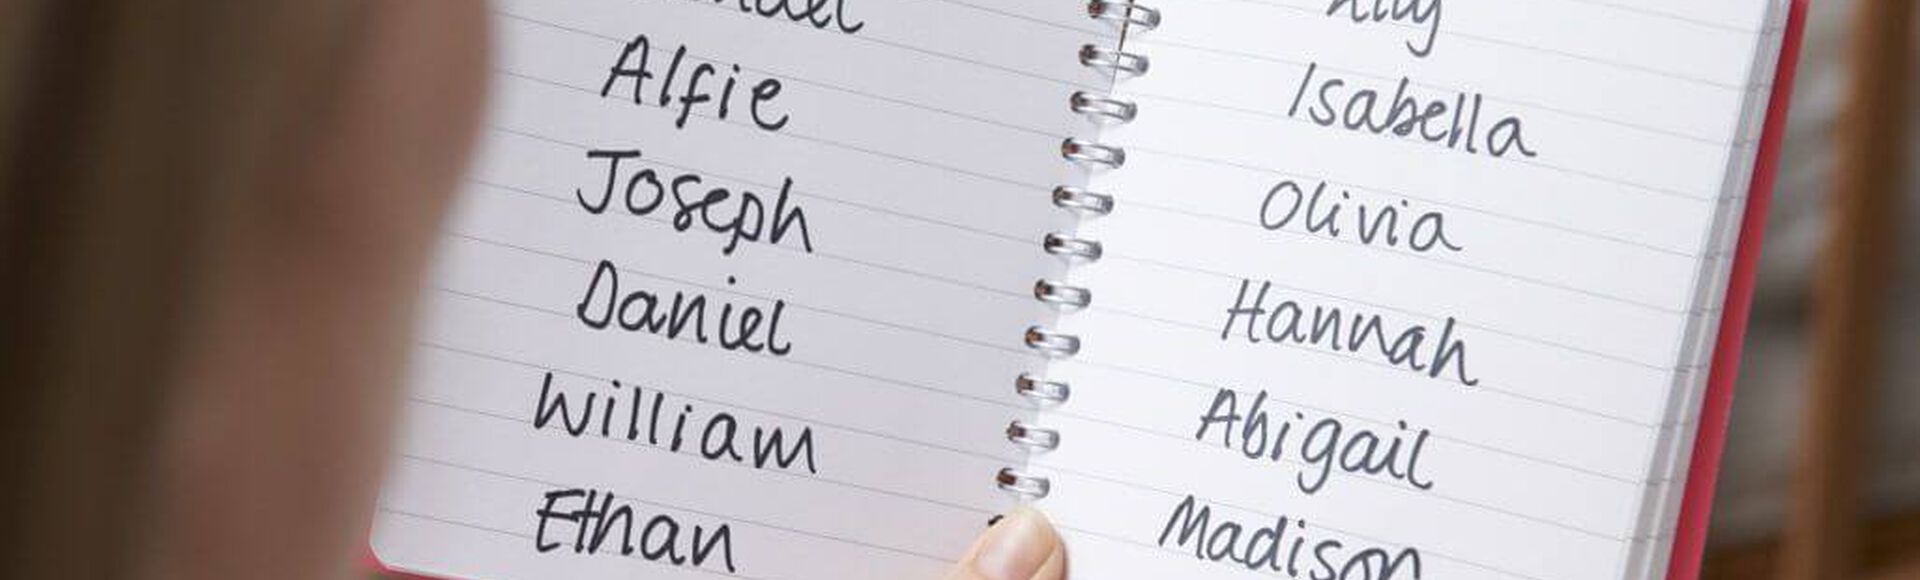 Alfie
Joseph
Daniel
William
Ethan
Isabella
Olivia
Hannah
Abigail
Madison